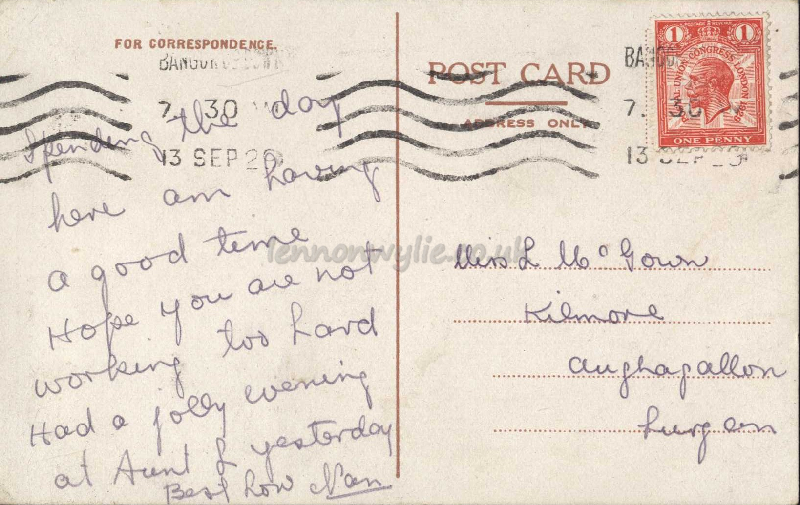 FOR CORRESPONDENCE.
BANGOR CO. DOWN
7. 30
13 SEP 29
Spending the day
here am having
a good time
Hope you are not
working too hard
Had a jolly evening
at Aunt L yesterday
Best love Nan
POST CARD
ADDRESS ONLY
BANGO
7. 30
13 SEP 29
1 POSTAGE REVENUE 1
POSTAL UNION CONGRESS LONDON 1929
ONE PENNY
Miss L McGown
Kilmore
Aughagallon
Lurgan
lennonwylie.co.uk